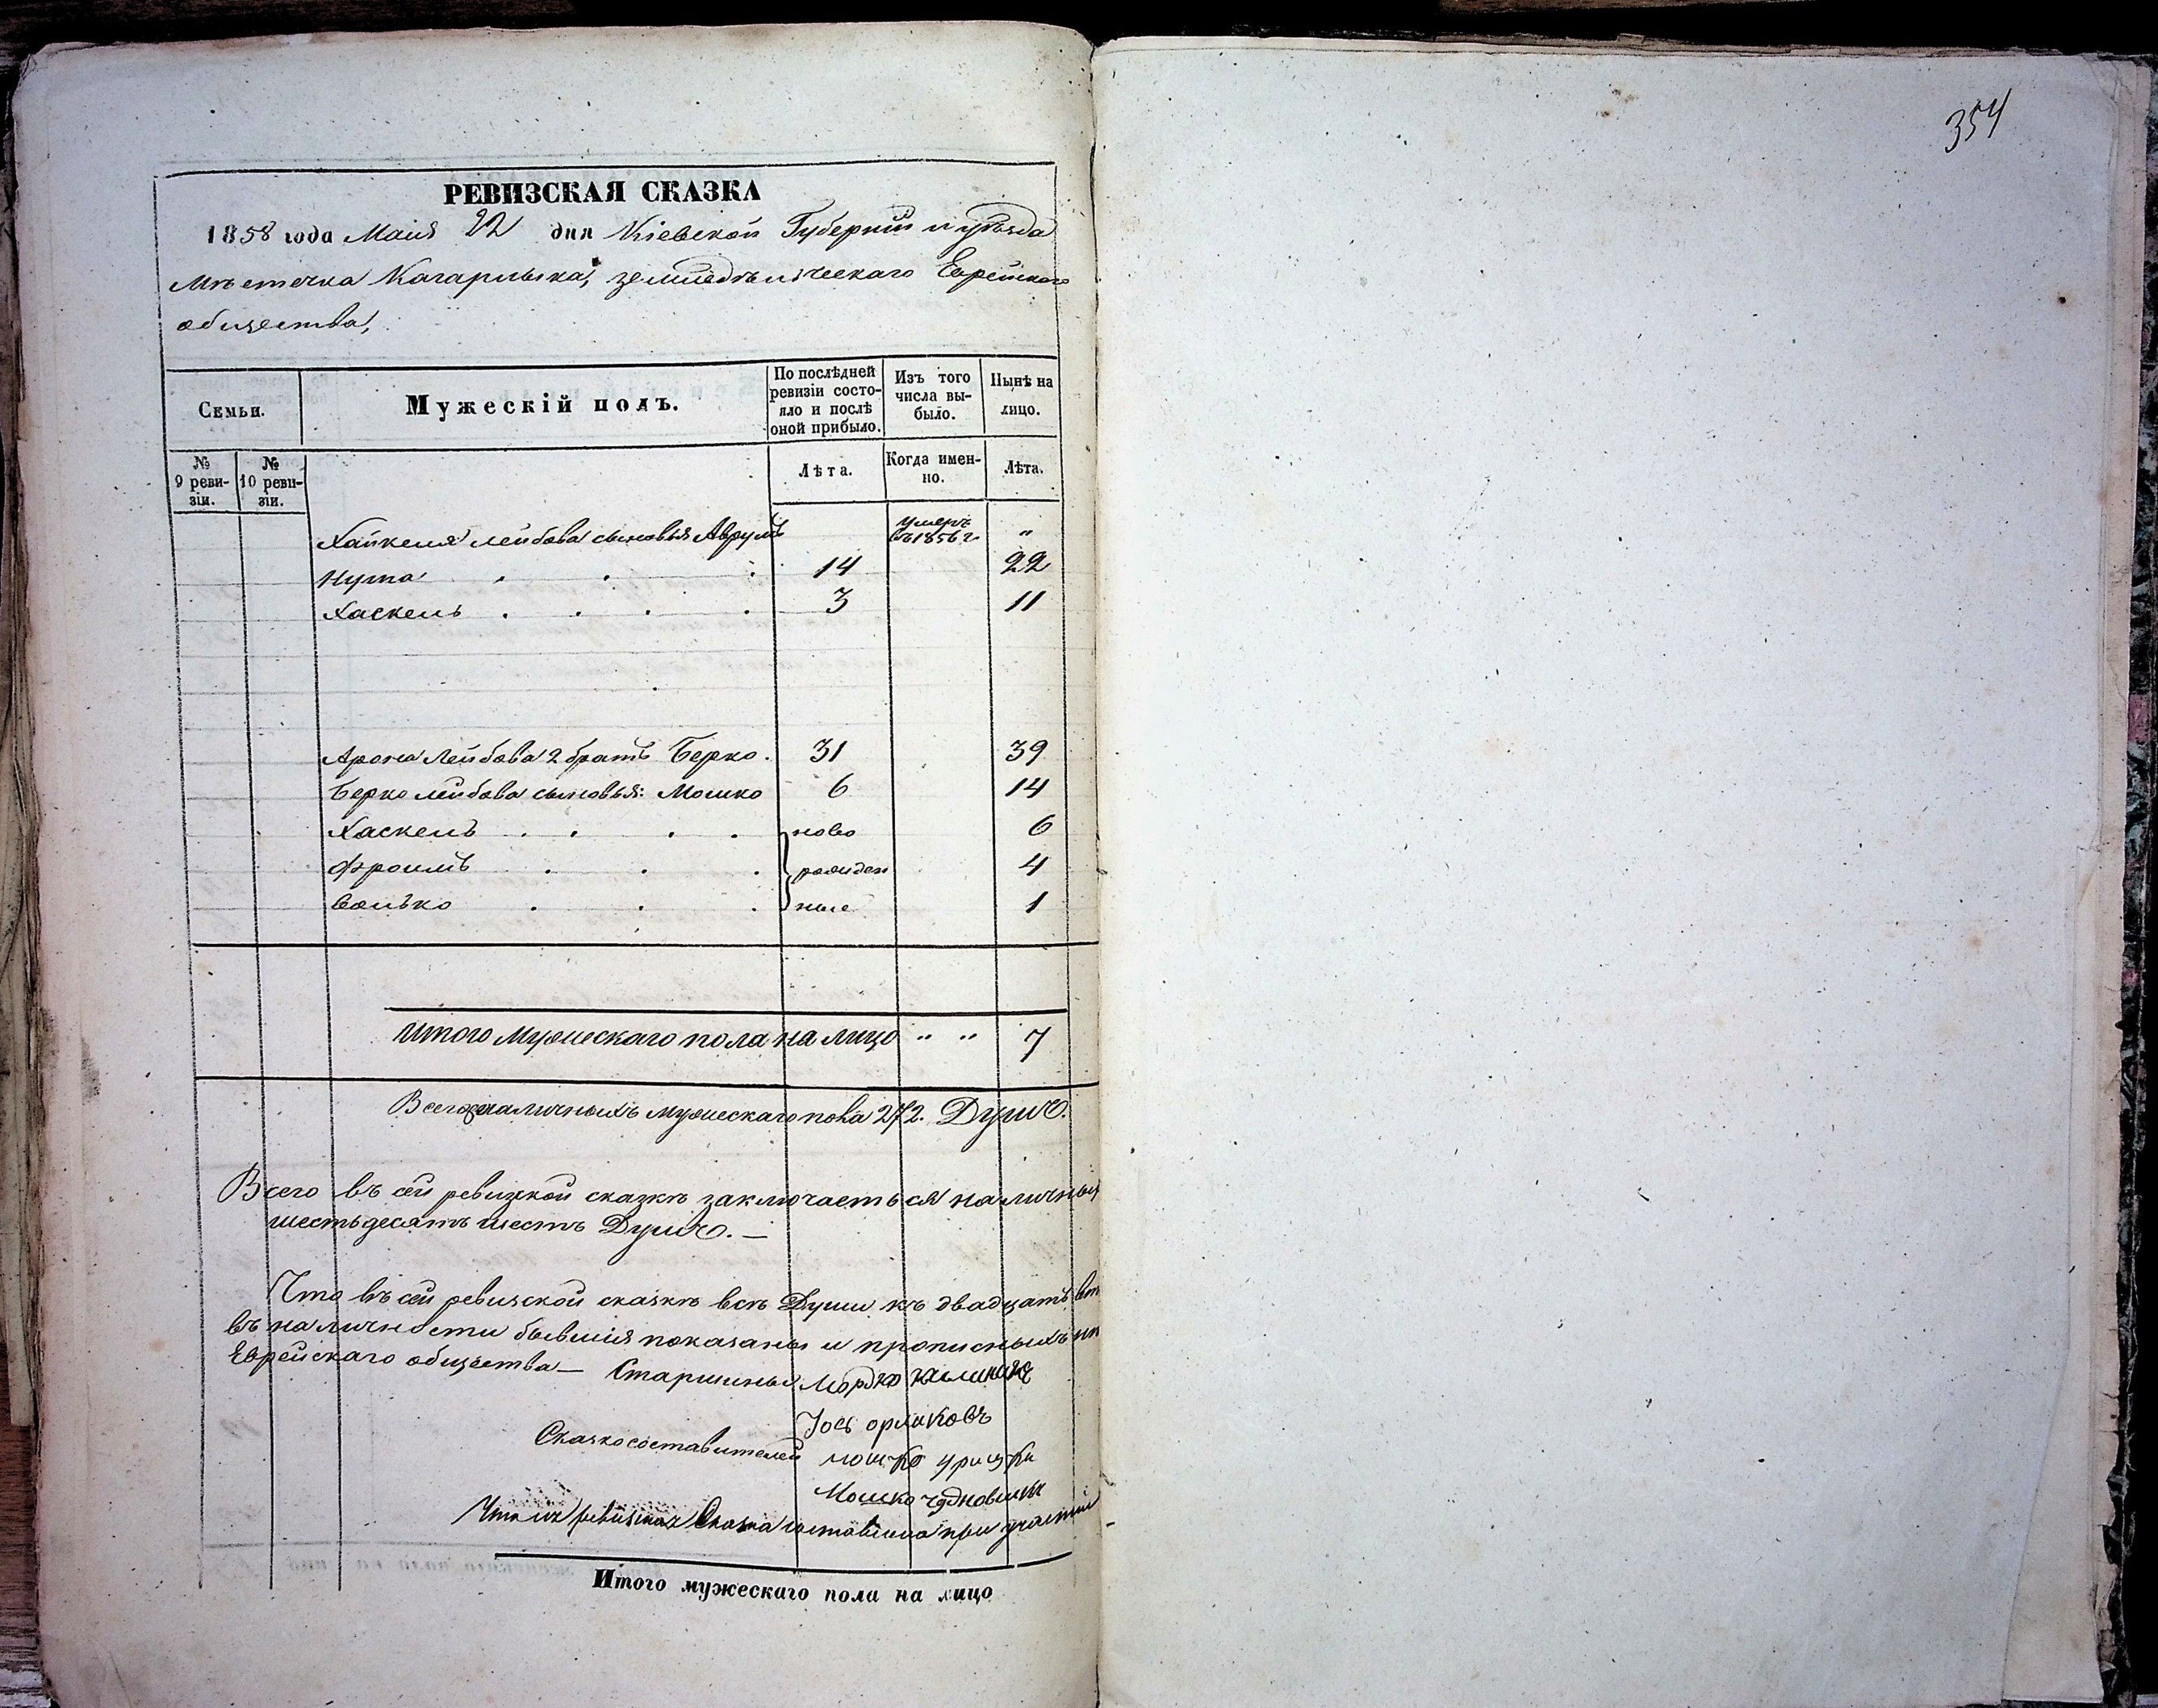 354
РЕВИЗСКАЯ СКАЗКА
1858 года Маия 22 дня Кіевской Губерніи и уѣзда
Мѣстечка Кагарлыка, землѣдѣльческаго Еврейскаго
общества,
Семьи.
Мужескій полъ.
По послѣдней ревизіи состо-
яло и послѣ оной прибыло.
Изъ того числа вы-
было.
Нынѣ на лицо.
№ 9 реви-
зіи.
№ 10 реви-
зіи.
Лѣта.
Когда имен-
но.
Лѣта.
Хайкеля Лейбова сыновья Аврумъ умеръ въ 1856 г. "
Нута 14 22
Хаскель 3 11
Арона Лейбова 2 братъ Берко. 31 39
Берко Лейбова сыновья: Мошко 6 14
Хаскель ново 6
Фроимъ рожден 4
Волько ные 1
Итого Мужескаго пола на лицо " " 7
Всего наличныхъ мужескаго пола 272. Душъ.
Всего въ сей ревизкой сказкѣ заключаеться наличныхъ
шестьдесятъ шесть Душъ. —
Что въ сей ревизской сказкѣ всѣ Души къ двадцать вт
въ наличности бывшія показаны и прописныхъ нѣ
Еврейскаго общества — Старшины Мордко
Іось орликовъ
Сказкосоставителей мошко урицки
Мошко чудновски
Что сія ревизская Сказка составлена при участіи
Итого мужескаго пола на лицо